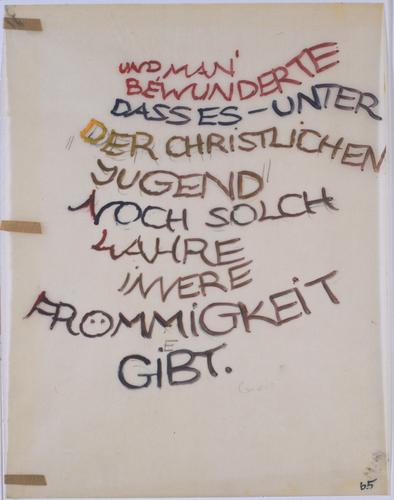 UND MAN
BEWUNDERTE
DASS ES - UNTER
"DER CHRISTLICHEN
JUGEND"
NOCH SOLCH
WAHRE
INNERE
FRÖMMIGKEIT
E
GIBT.
65